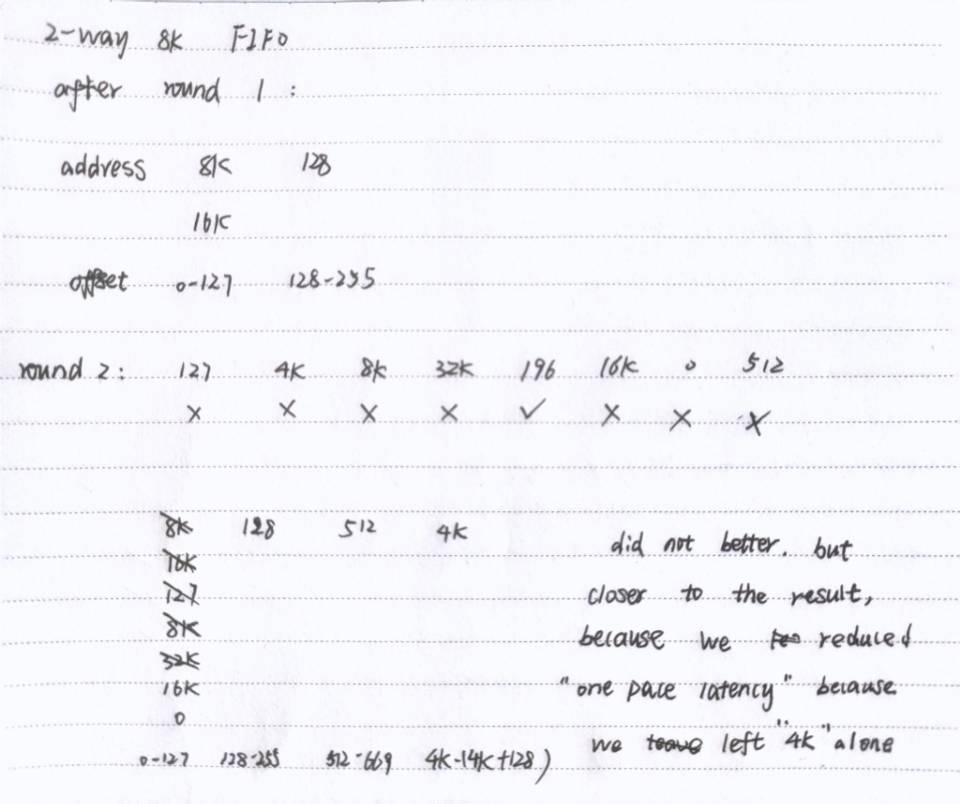 2-way 8K FIFO
after round 1 :
address 8K 128
16K
offset 0-127 128-255
round 2 : 127 4K 8K 32K 196 16K 0 512
× × × × ✓ × × ×
8K 128 512 4K
16K
127
8K
32K
16K
0
0-127 128-255 512-669 4K-(4K+128)
did not better. but
closer to the result,
because we reduced
"one pace latency" because
we leave left "4K" alone